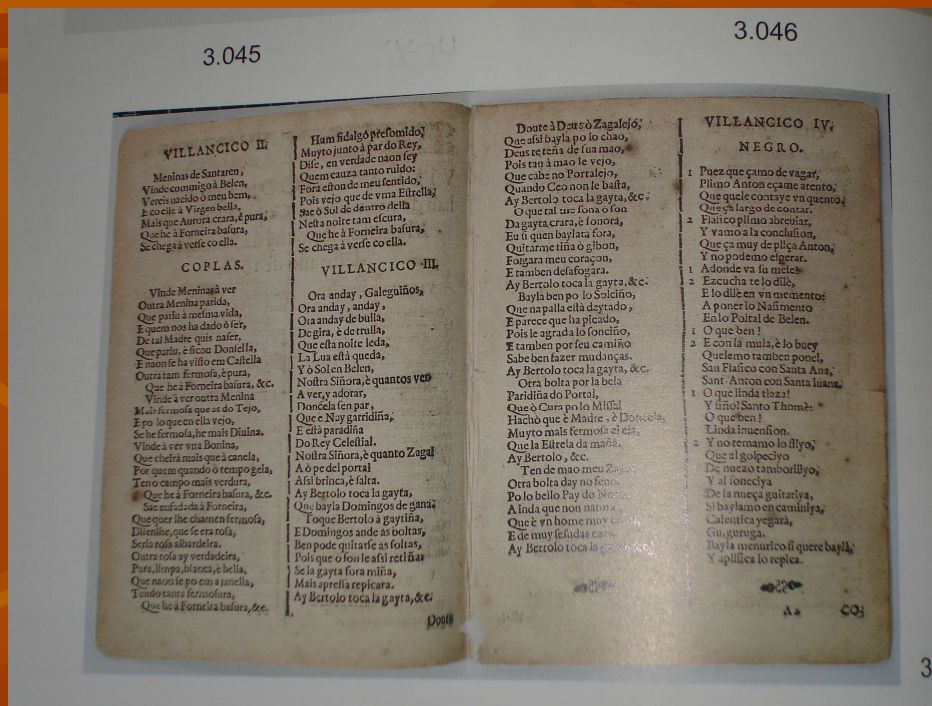 3.045
3.046
VILLANCICO II.
Meninas de Santaren,
Vinde commigo à Belen,
Vereis nacido ò meu bem,
E coelle à Virgen bella,
Mais que Aurora crara, è pura,
Que he à Forneira basura,
Se chega à verse co ella.
COPLAS.
Vinde Meninas à ver
Outra Menina parida,
Que pariu à mesma vida,
E quem nos ha dado ò ser,
De tal Madre quis nascer,
Que pariu, è ficou Donsella,
E naon se ha visto em Castella
Outra tam fermosa, è pura,
Que he à Forneira basura, &c.
Vinde à ver outra Menina
Mais fermosa que as do Tejo,
E po lo que en ella vejo,
Se he fermosa, he mais Diuina.
Vinde à ver vna Bonina,
Que cheira mais que à canela,
Por quem quando ò tempo gela,
Ten o campo mais verdura,
Que he à Forneira basura, &c.
Sae enfadada à Forneira,
Que quer lhe chamen fermosa,
Disenlhe, que se era rosa,
Seria rosa albardeira.
Outra rosa ay verdadeira,
Pura, limpa, blanca, è bella,
Que naon se po em a janella,
Tendo tanta fermosura,
Que he à Forneira basura, &c.
Hum fidalgo presomido,
Muyto junto à par do Rey,
Dise, en verdade naon sey
Quem cauza tanto ruido:
Fora estou de meu sentido,
Pois vejo que de vma Estrella,
Sae ò Sul de dentro della
Nesta noite tam escura,
Que he à Forneira basura,
Se chega à verse co ella.
VILLANCICO III.
Ora anday, Galeguiños,
Ora anday, anday,
Ora anday de bulla,
De gira, è de trulla,
Que esta noite leda,
La Lua està queda,
Y ò Sol en Belen,
Nostra Siñora, è quantos ven
A ver, y adorar,
Doncela sen par,
Que è Nay garridiña,
E està paradiña
Do Rey Celestial.
Nostra Siñora, è quanto Zagal
A ò pe del portal
Assi brinca, è salta.
Ay Bertolo toca la gayta,
Que bayla Domingos de gana.
Toque Bertolo à gaytiña,
E Domingos ande as boltas,
Ben pode quitarse as soltas,
Pois que ò son le assi retiña:
Se la gayta fora miña,
Mais apressa repicara.
Ay Bertolo toca la gayta, &c.
Doute
Doute à Deus ò Zagalejo,
Que assi bayla po lo chao,
Deus te teña de sua mao,
Pois tan à mao le vejo,
Que cabe no Portalejo,
Quando Ceo non le basta,
Ay Bertolo toca la gayta, &c.
O que tal me sona ò son
Da gayta crara, è sonora,
Eu si quen baylara fora,
Quitarme tiña ò gibon,
Folgara meu coraçon,
E tamben desafogara.
Ay Bertolo toca la gayta, &c.
Bayla ben po lo Solciño,
Que na palla està deytado,
E parece que ha picado,
Pois le agrada lo sonciño,
E tamben por seu camiño
Sabe ben fazer mudanças.
Ay Bertolo toca la gayta, &c.
Otra bolta por la bela
Paridiña do Portal,
Que ò Cura po lo Missal
Hachò que è Madre, è Doncela,
Muyto mais fermosa ei ela,
Que la Estrela da mañá.
Ay Bertolo, &c.
Ten de mao meu
Otra bolta day no
Po lo bello Pay do
Ainda que non
Que è vn home muy
E de muy sesudas
Ay Bertolo toca la
VILLANCICO IV.
NEGRO.
1 Puez que çamo de vagar,
Plimo Anton eçame atento,
Que quele contaye vn quento,
Que çà largo de contar.
2 Flasico plimo abreuiar,
Y vamo a la conclusion,
Que ça muy de pliça Anton,
Y no podemo esperar.
1 Adonde va su mele?
2 Ezcucha te lo dilè,
E lo dilè en vn memento:
A poner lo Nasimento
En lo Poltal de Belen.
1 O que ben!
2 E con la mula, è lo buey
Quelemo tamben ponel,
San Flasico con Santa Ana,
Sant-Anton con Santa Iuana.
1 O que linda tlaza!
Y siñol Santo Thomè:
O que ben!
Linda inuension.
2 Y no temamo lo fliyo,
Que al golpeciyo
De nuezo tamboriliyo,
Y al soneciya
De la nueça guitariya,
Si baylamo en caminiya,
Calentica yegarà,
Gu, guruga.
Bayla menurico si quere baylà,
Y aplisica lo repica.
Aa
CO-
3